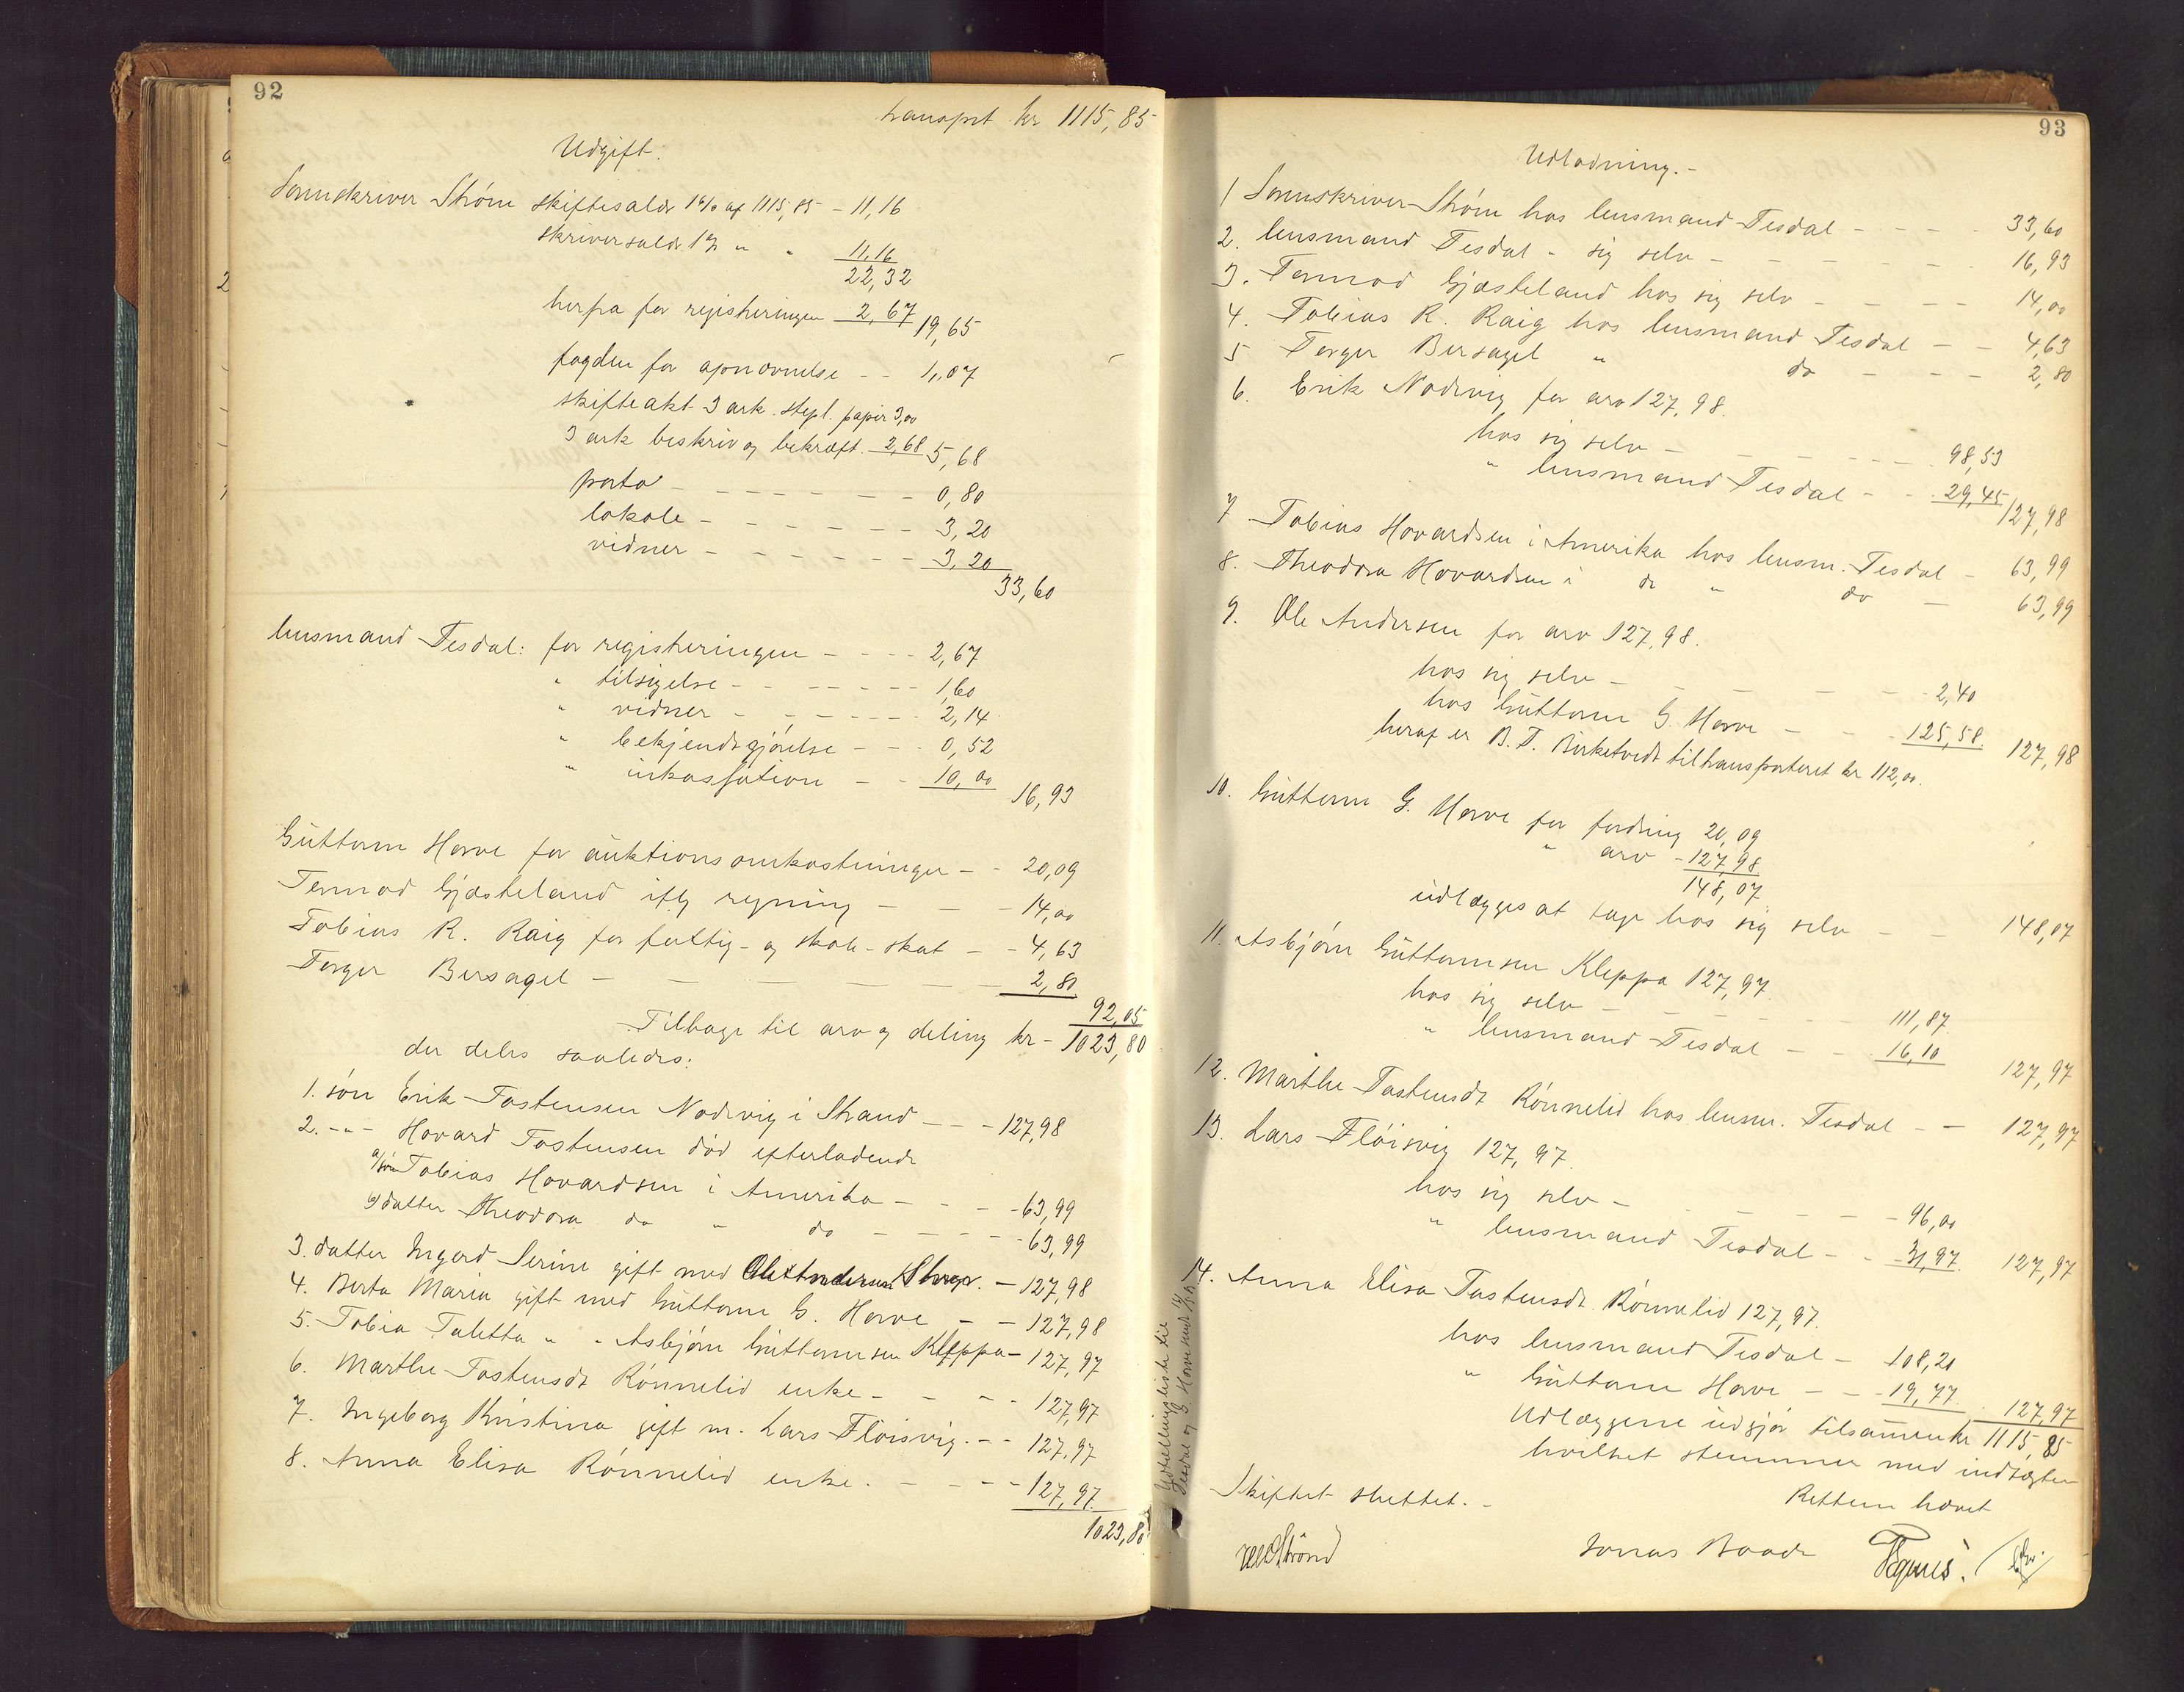 92
transprt kr 1115,85
Udgift.
Sorenskriver Strøm skiftesalær 1% af 1115,85 - 11,16
skriversalær 1% " " 11,16
22,32
herfra for registreringen 2,67 19,65
fogden for opnævnelse - - 1,07
skifteakt 3 ark. stepl. papir 3,00
3 ark beskriv og bekræft. 2,68 5,68
porto - - - - - - - 0,80
lokale - - - - - - 3,20
vidner - - - - - - 3,20
33,60
lensmand Tesdal: for registreringen - - - - 2,67
" tilsigelse - - - - - - - 1,60
" vidner - - - - - - - 2,14
" bekjendtgjørelse - - - 0,52
" inkassation - - 10,00 16,93
Guttorm Horve for auktionsomkostninger - - 20,09
Tormod Gjæsteland iflg regning - - - 14,00
Tobias R. Raig for fattig- og skole-skat - - 4,63
Torger Bersagel - - - - - - 2,80
92,05
Tilbage til arv og deling kr - 1023,80
der deles saaledes:
1. søn Erik Tostensen Nodvig i Strand - - - 127,98
2. - " - Hovard Tostensen død efterladende
a/ søn Tobias Hovardsen i Amerika - - - - 63,99
b/ datter Theodora do " do - - - - - 63,99
3. datter Ingerd Serine gift med Ole Andersen - 127,98
4. Berta Maria gift med Guttorm G. Horve - - 127,98
5. Tobia Taletta " " Asbjørn Guttormsen Kleppa - 127,97
6. Marthe Tostensdt Rønnelid enke - - - - 127,97
7. Ingeborg Kristina gift m. Lars Fløisvig. - - 127,97
8. Anna Elisa Rønnelid enke. - - - - 127,97
1023,80
93
Udlodning. -
1 Sorenskriver Strøm hos lensmand Tesdal - - - - 33,60
2. lensmand Tesdal - sig selv - - - - - - - 16,93
3. Tormod Gjæsteland hos sig selv - - - - 14,00
4. Tobias R. Raig hos lensmand Tesdal - - 4,63
5 Torger Bersagel " do - - - 2,80
6. Erik Nodvig for arv 127,98.
hos sig selv - - - - - - - 98,53
" lensmand Tesdal - - 29,45 127,98
7 Tobias Hovardsen i Amerika hos lensm. Tesdal - 63,99
8. Theodora Hovardsen i do " do - 63,99
9. Ole Andersen for arv 127,98.
hos sig selv - - - - - - 2,40
hos Guttorm G. Horve - - - 125,58. 127,98
heraf er B. T. Birketvedt tiltransporteret kr 112,00.
10. Guttorm G. Horve for fordring 20,09
" arv - 127,98
148,07
udlægges at tage hos sig selv - - 148,07
11. Asbjørn Guttormsen Kleppa 127,97.
hos sig selv - - - - - - 111,87
" lensmand Tesdal - - 16,10 127,97
12. Marthe Tostensdt Rønnelid hos lensm. Tesdal - - 127,97
13. Lars Fløisvig 127,97.
hos sig selv - - - - - - 96,00
" lensmand Tesdal - - 31,97. 127,97
14. Anna Elisa Tostensdt. Rønnelid 127,97.
hos lensmand Tesdal - 108,20
" Guttorm Horve - - - 19,77. 127,97
Udlæggene udgjør tilsammen kr 1115,85
hvilket stemmer med indtægten
Skiftet sluttet. - Retten hævet
Jonas Baade
Udtællingsliste til
Tesdal og G. Horve